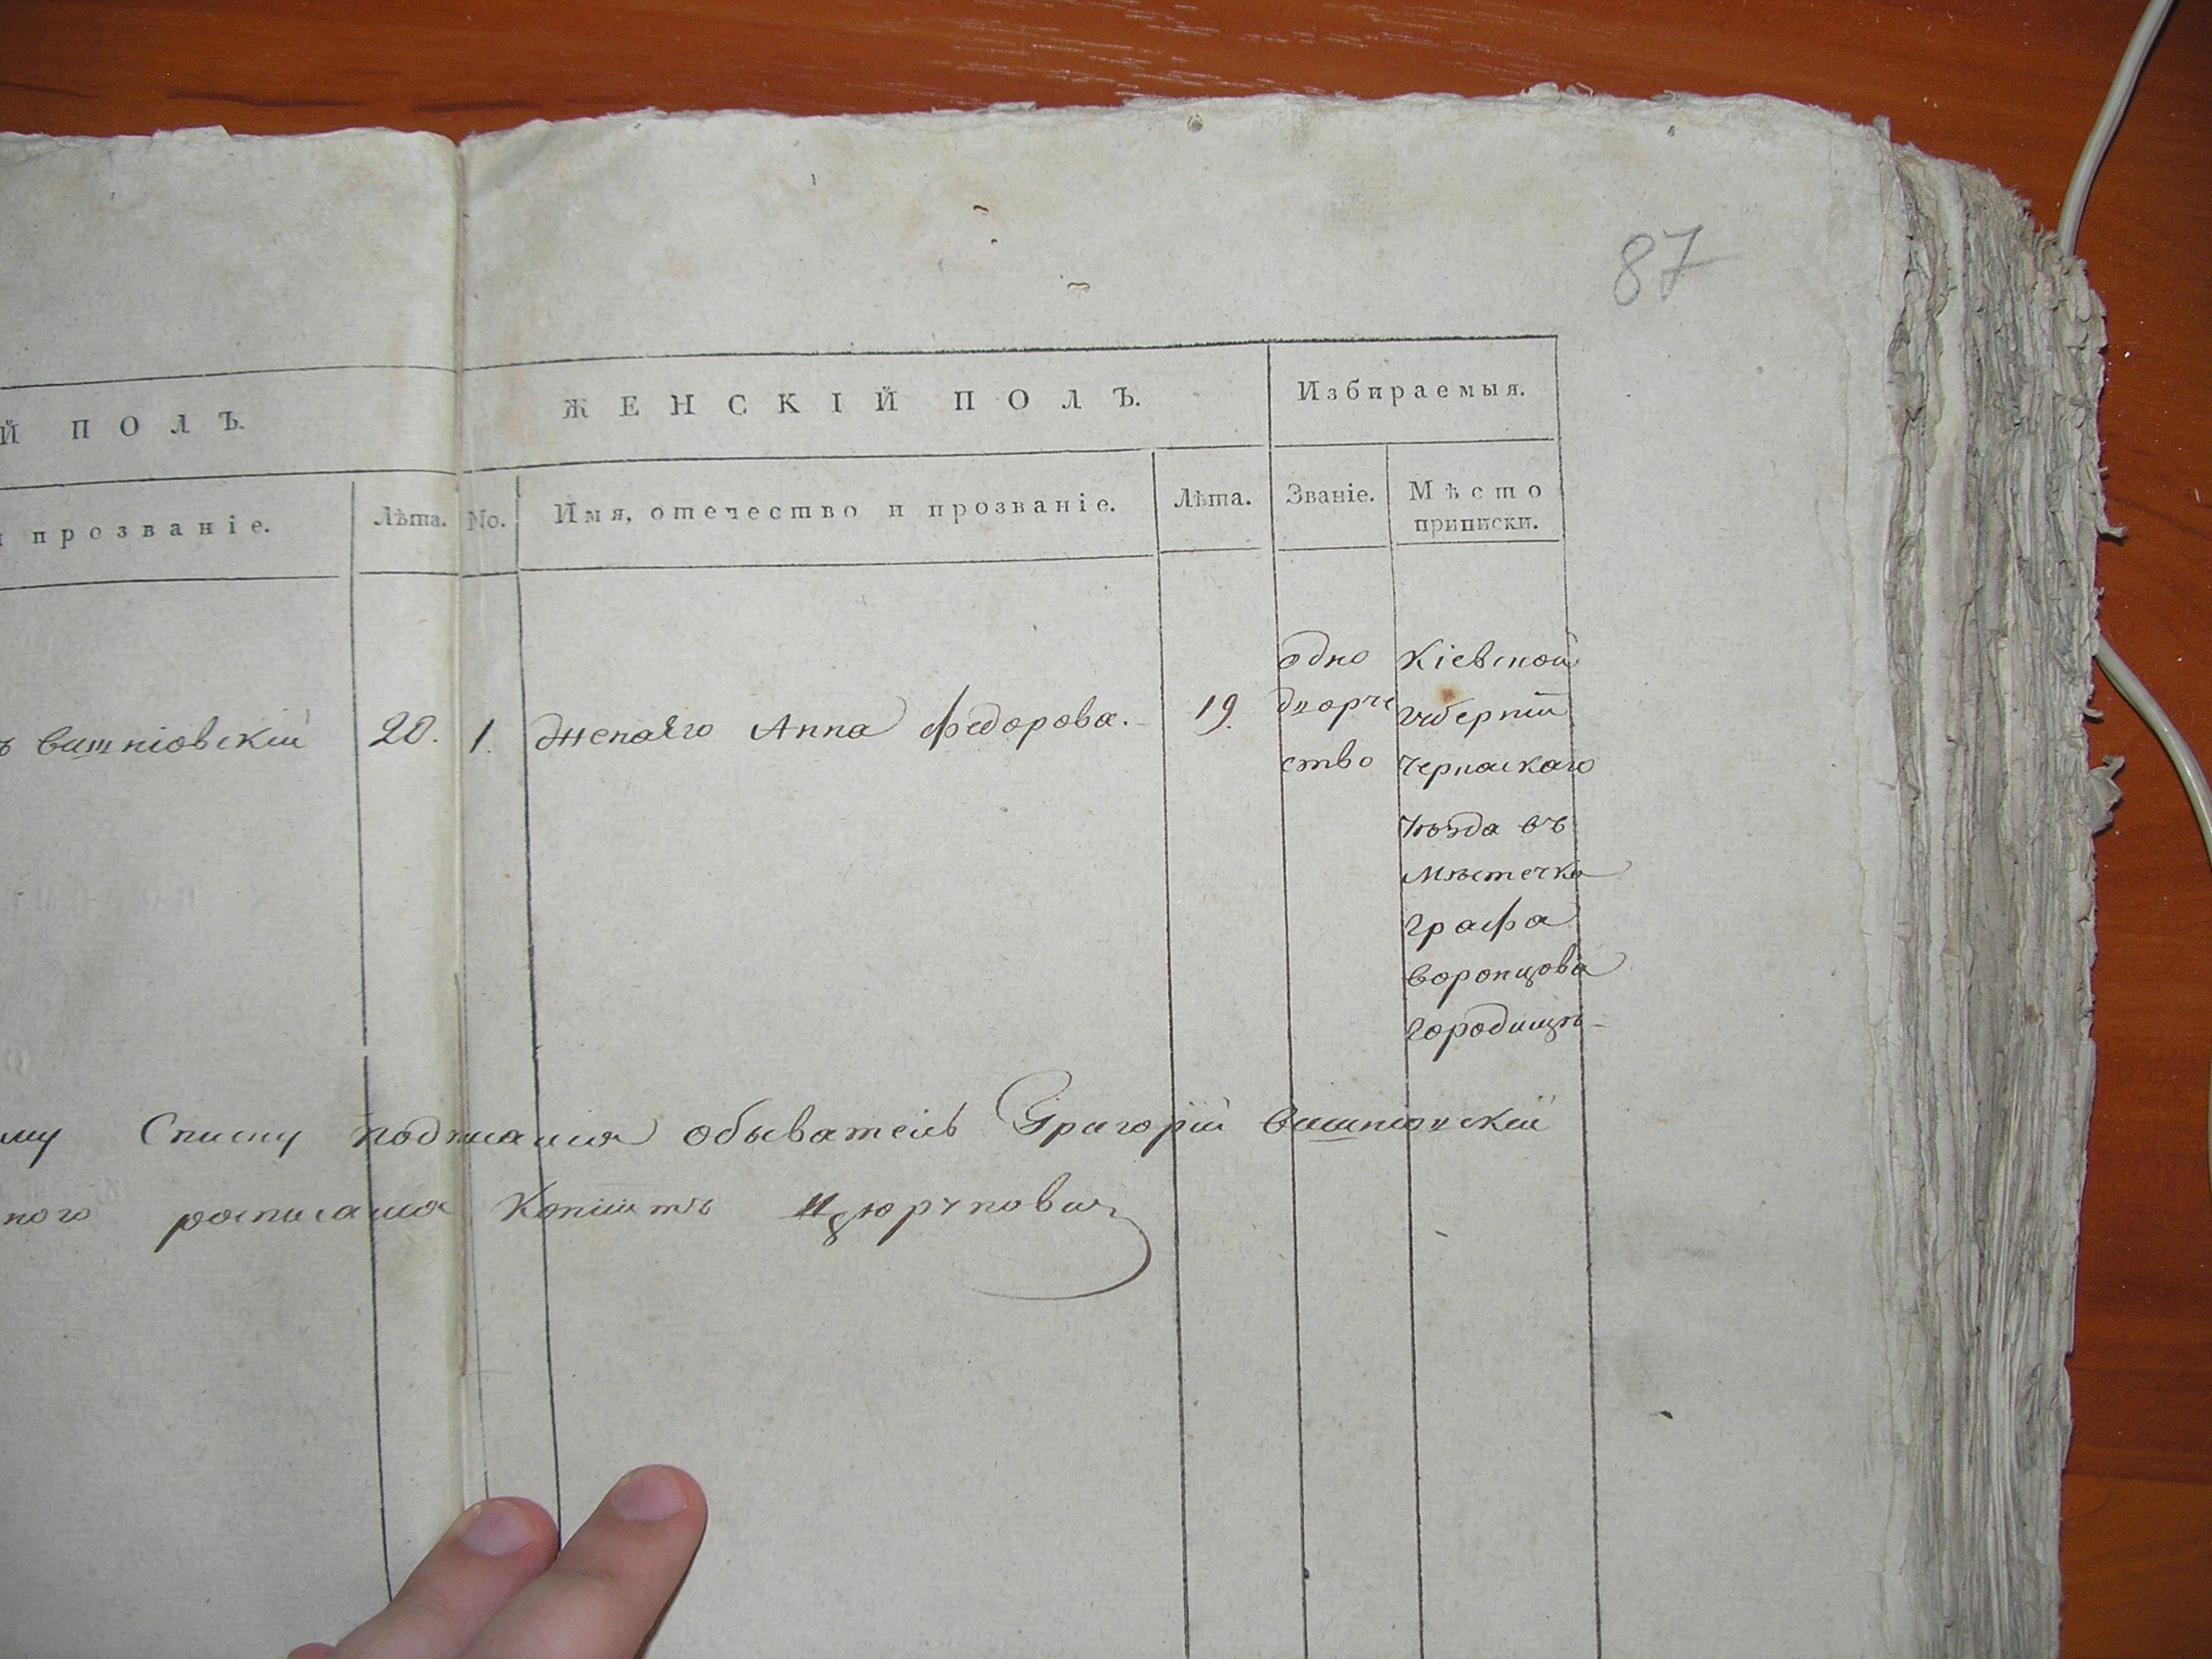 87
Й ПОЛЪ.
ЖЕНСКІЙ ПОЛЪ.
Избираемыя.
прозваніе.
Лѣта.
No.
Имя, отечество и прозваніе.
Лѣта.
Званіе.
Мѣсто
приписки.
ъ Вишніовскій
20.
1.
Жена Его Анна Федорова.
19.
одно
дворче
ство
Кіевской
Губерніи
Черкаскаго
Уѣзда въ
Мѣстечко
Графа
Воронцова
Городищѣ
му Списку подписался обыватель Григорій Вишніовскій
ного росписался Копіистъ